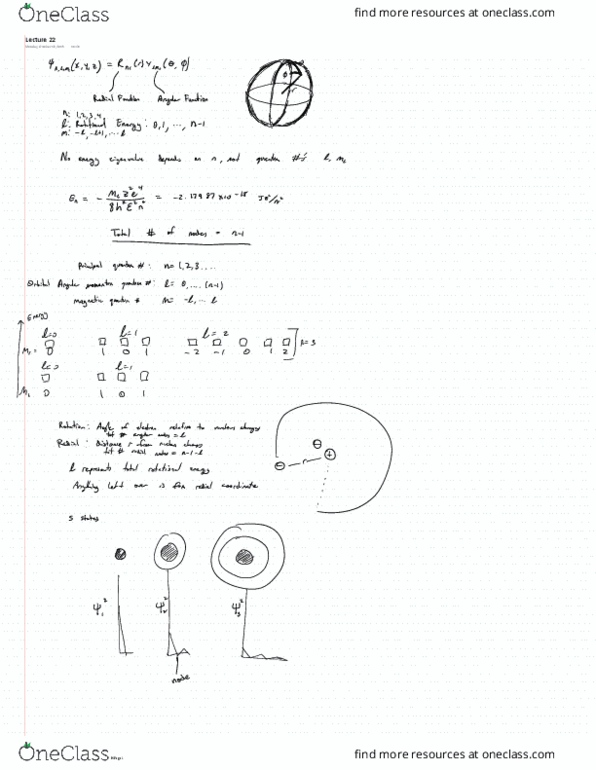 OneClass
find more resources at oneclass.com
Lecture 22
Ψn,l,m(x,y,z) = Rnl(r) Ylm(θ, ϕ)
Radial Function Angular Function
n: 1,2,3,4
l: Rotational Energy: 0,1, ..., n-1
m: -l, -l+1, ... l
No energy eigenvalue depends on n, and quantum #'s l, m
= -2.17987 x10⁻¹⁸
Total # of nodes = n-1
Principal quantum #: n=1,2,3....
Orbital Angular momentum quantum #: l= 0,....(n-1)
magnetic quantum # M= -l,..l
l=0 l=1 l=2
0 1 0 1 -2 -1 0 1 2
l=0 l=1
0 1 0 1
Rotation: Angle of electron relative to nucleus changes
tot # angular nodes = l
Radial: Distance r from nucleus changes
tot # radial nodes = n-1-l
⊖ r ⊕
⊖
l represents total rotational energy
Anything left over is for radial coordinate
S states
Ψ₁² Ψ₂² Ψ₃²
node
OneClass
find more resources at oneclass.com